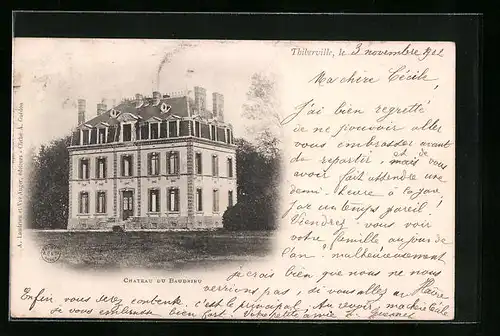 Thiberville, le 3 novembre 1902
Ma chère Cécile,
J'ai bien regretté
de ne pouvoir aller
vous embrasser avant
de repartir, et de
mais de vous attendre une
demi-heure à la gare
par un temps pareil!
Viendrez-vous voir
votre famille au jour de
l'an? malheureusement
je crois bien que nous ne nous
verrions pas, si vous allez au
Enfin vous serez contente c'est le principal. Au revoir, ma chère Cécile
je vous embrasse bien fort, Votre petite amie L.
CHATEAU DU BAUDRIEU
A. Lambrien et Vor Auger, Editeurs